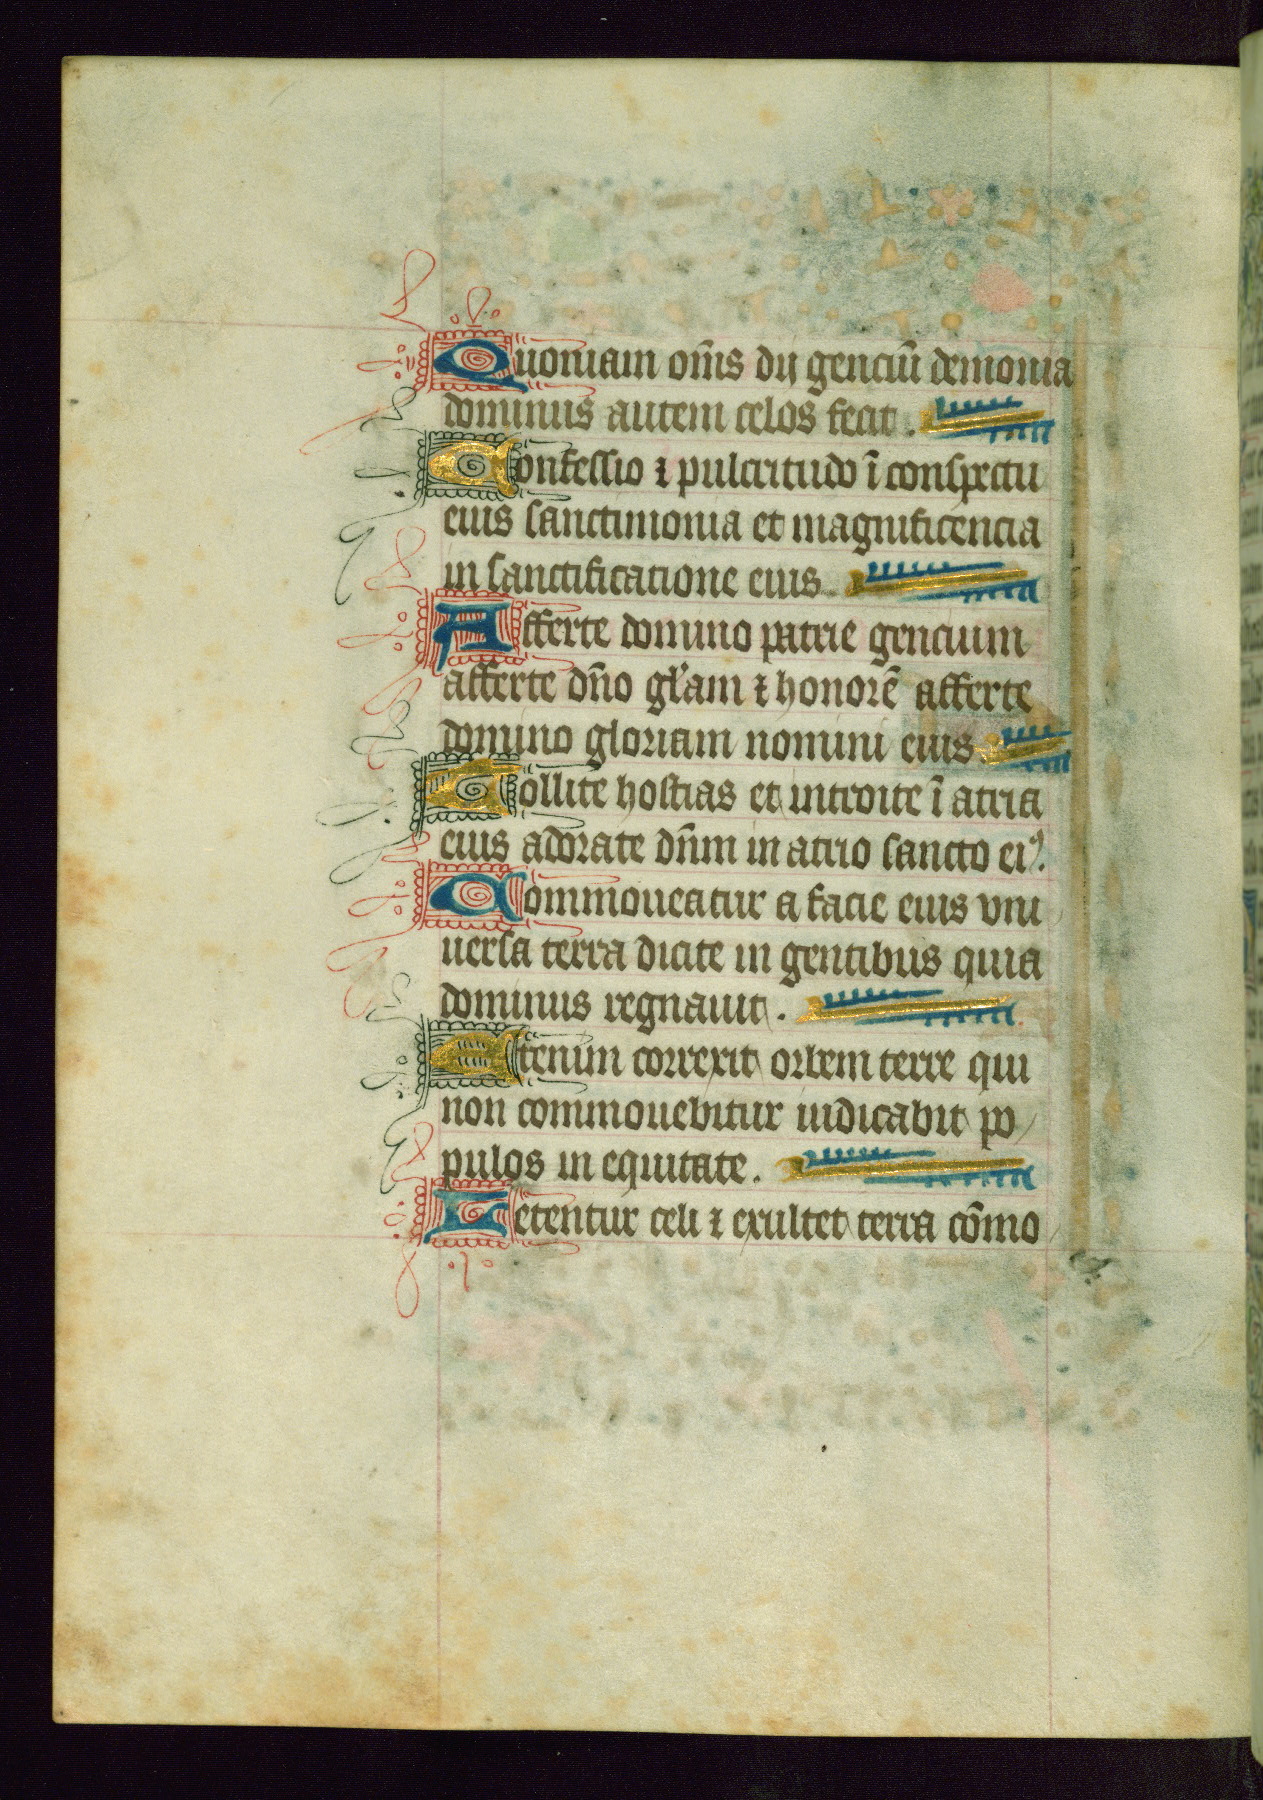 Quoniam om̄s dij genciū demonia
dominus autem celos fecit.
Confessio ⁊ pulcritudo ī conspectu
eius sanctimonia et magnificencia
in sanctificatione eius.
Afferte domino patrie gencium
afferte dn̄o gl'am ⁊ honorē afferte
domino gloriam nomini eius.
Tollite hostias et introite ī atria
eius adorate dn̄m in atrio sancto eiꝰ.
Commoueatur a facie eius vni
uersa terra dicite in gentibus quia
dominus regnauit.
Etenim correxit orbem terre qui
non commouebitur iudicabit po
pulos in equitate.
Letentur celi ⁊ exultet terra cōmo